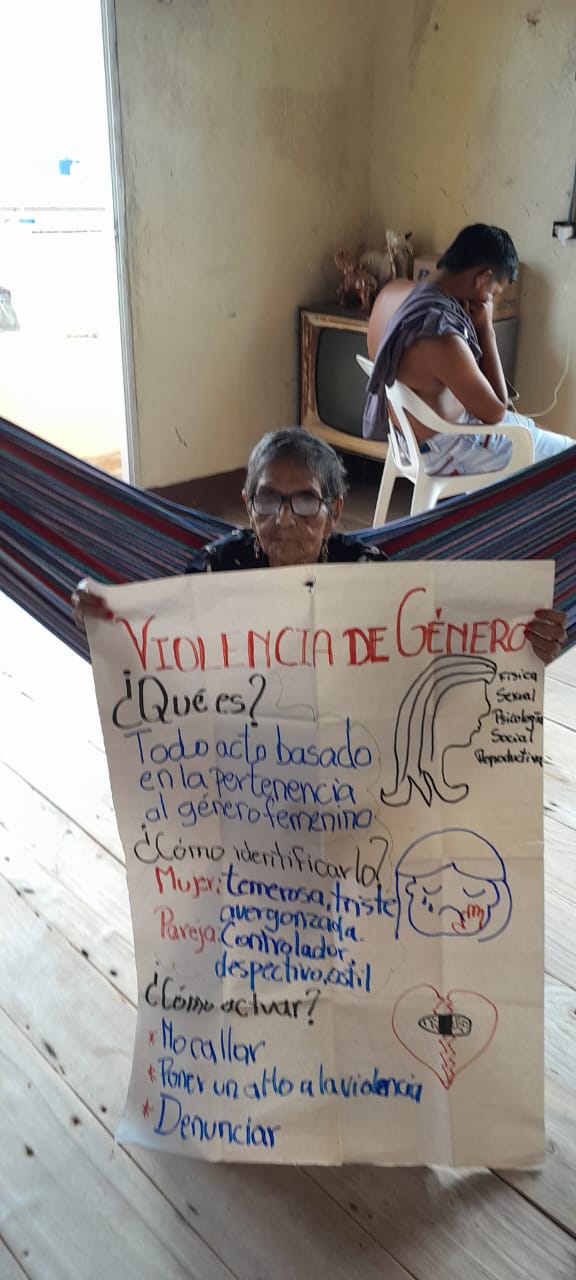 VIOLENCIA DE GÉNERO
¿Qué es?
Todo acto basado
en la pertenencia
al género femenino
Fisica
Sexual
Psicologica
Social
Reproductiva
¿Cómo identificarlo?
Mujer: temerosa, triste
avergonzada.
Pareja: Controlador,
despectivo, ostil
¿Cómo actuar?
* No callar
* Poner un alto a la violencia
* Denunciar